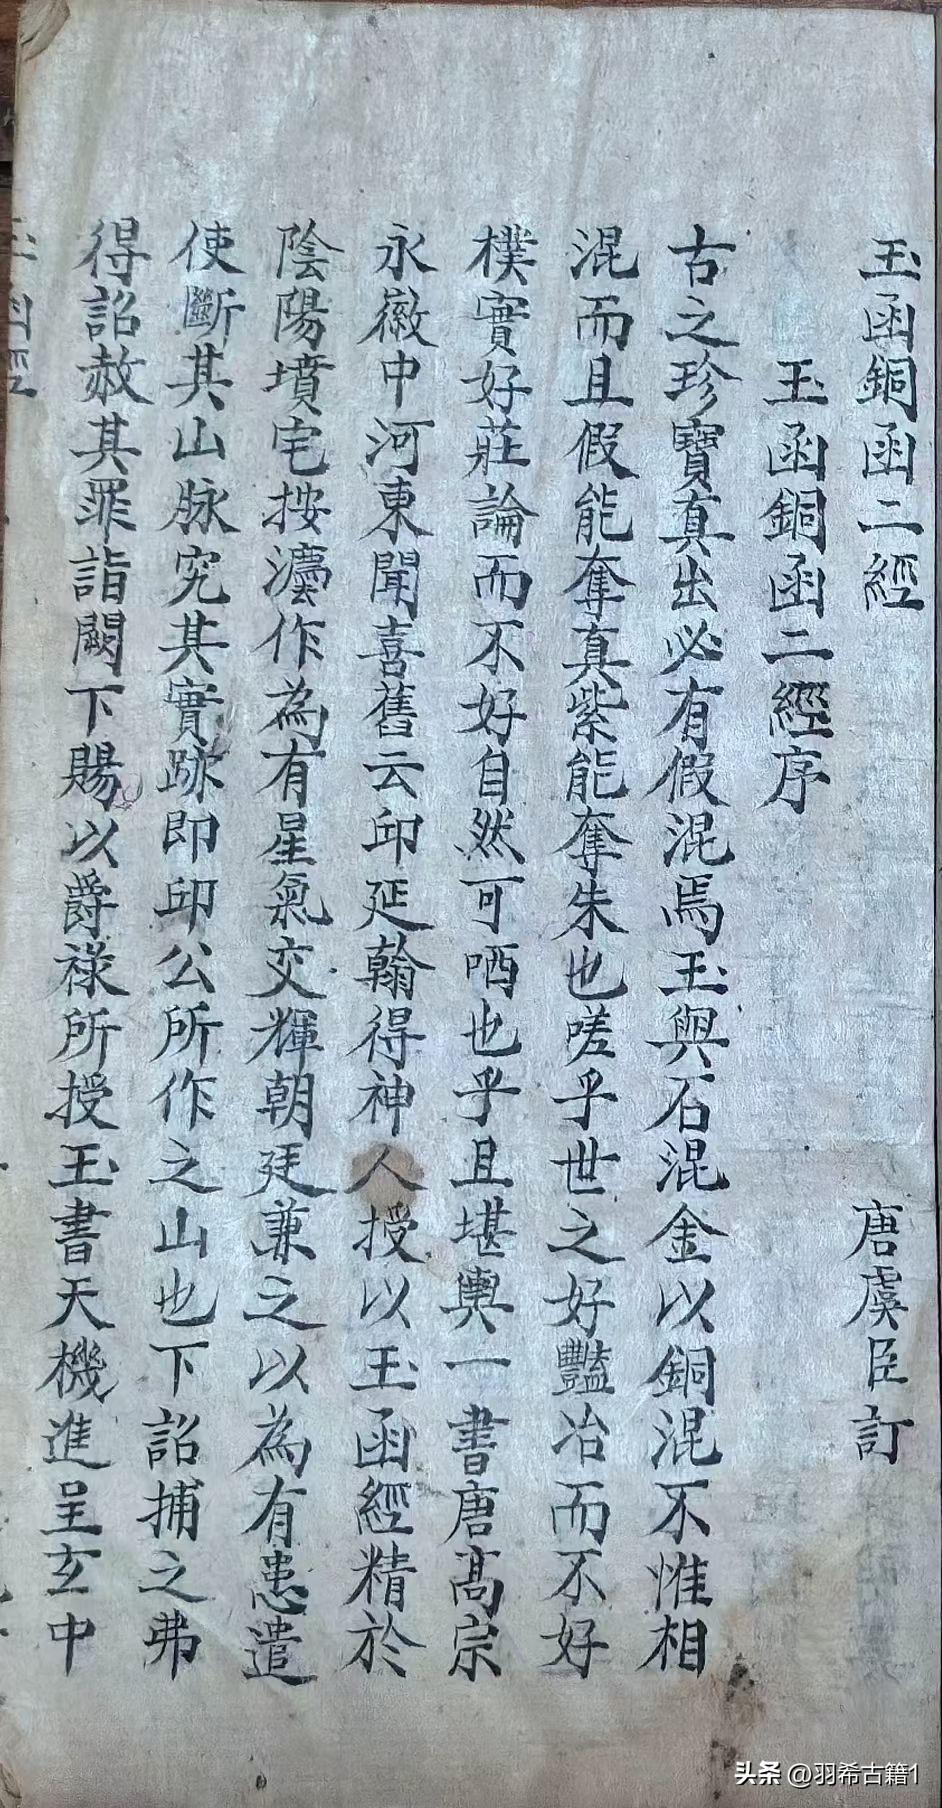 玉函銅函二經
唐虞臣訂
玉函銅函二經序
古之珍寶真出必有假混焉玉與石混金以銅混不惟相
混而且假能奪真紫能奪朱也嗟乎世之好豔冶而不好
樸實好莊論而不好自然可哂也乎且堪輿一書唐高宗
永徽中河東聞喜舊云邱延翰得神人授以玉函經精於
陰陽墳宅按灋作為有星氣交輝朝廷兼之以為有患遣
使斷其山脉究其實跡即邱公所作之山也下詔捕之弗
得詔赦其罪詣闕下賜以爵祿所授玉書天機進呈玄中
玉函經
头条 @羽希古籍1